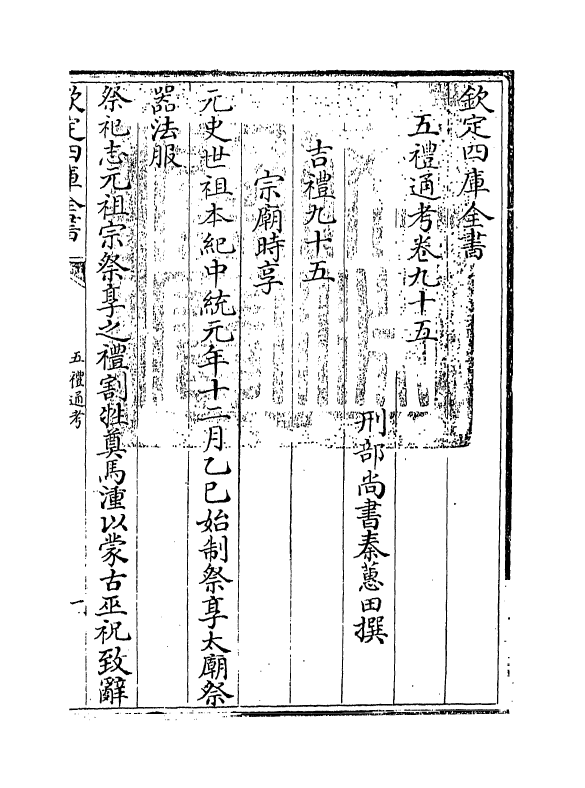 欽定四庫全書
五禮通考卷九十五
刑部尚書秦蕙田撰
吉禮九十五
宗廟時享
元史世祖本紀中統元年十二月乙巳始制祭享太廟祭
器法服
祭祀志元祖宗祭享之禮割牲奠馬湩以蒙古巫祝致辭
欽定四庫全書
五禮通考
一